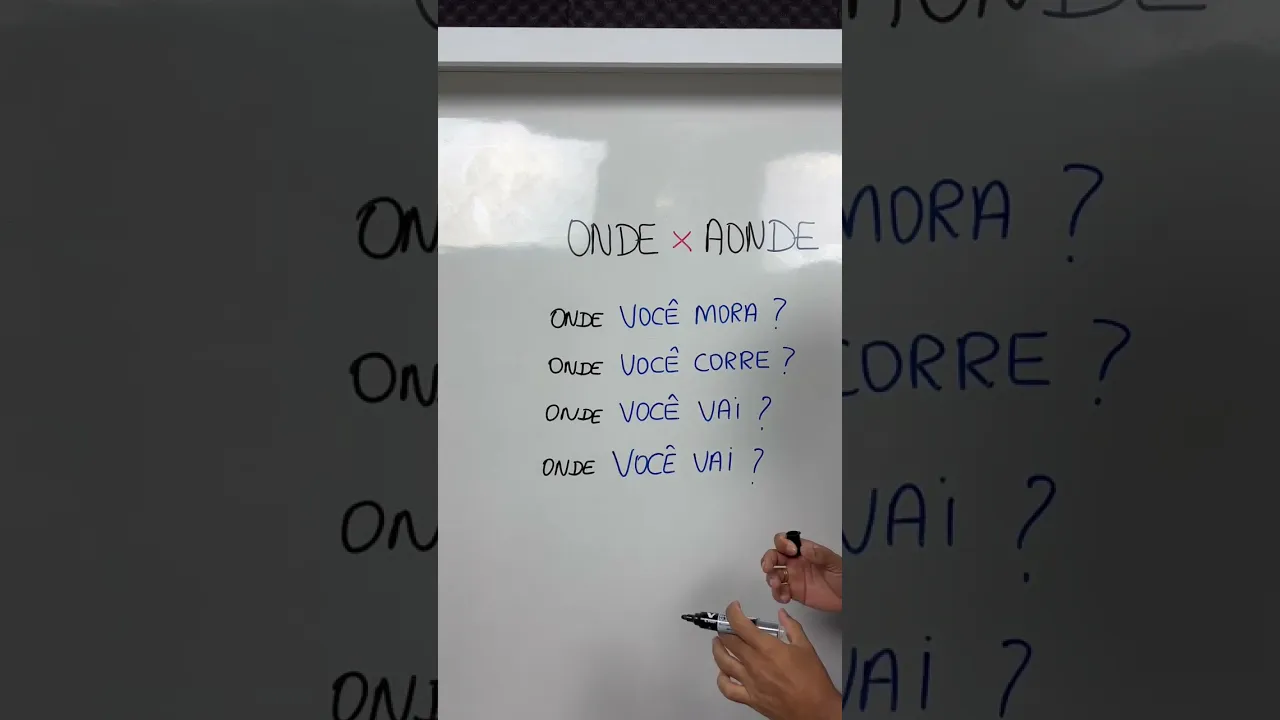 ONDE × AONDE
ONDE VOCÊ MORA ?
ONDE VOCÊ CORRE ?
ONDE VOCÊ VAi ?
ONDE VOCÊ VAi ?